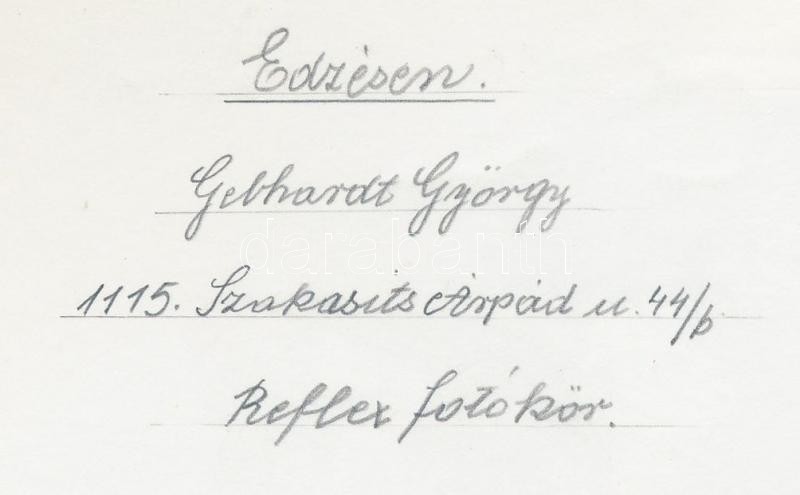 Edzésen.
Gebhardt György
darabanth
1115. Szakasits Árpád u. 44/b
Reflex fotókör.